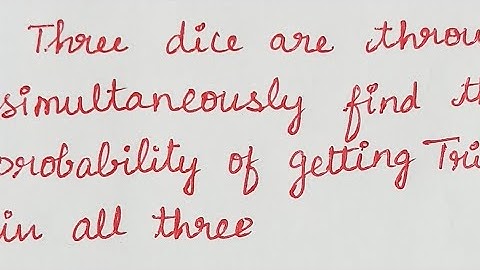 Three dice are throw
simultaneously find th
probability of getting Tri
in all three